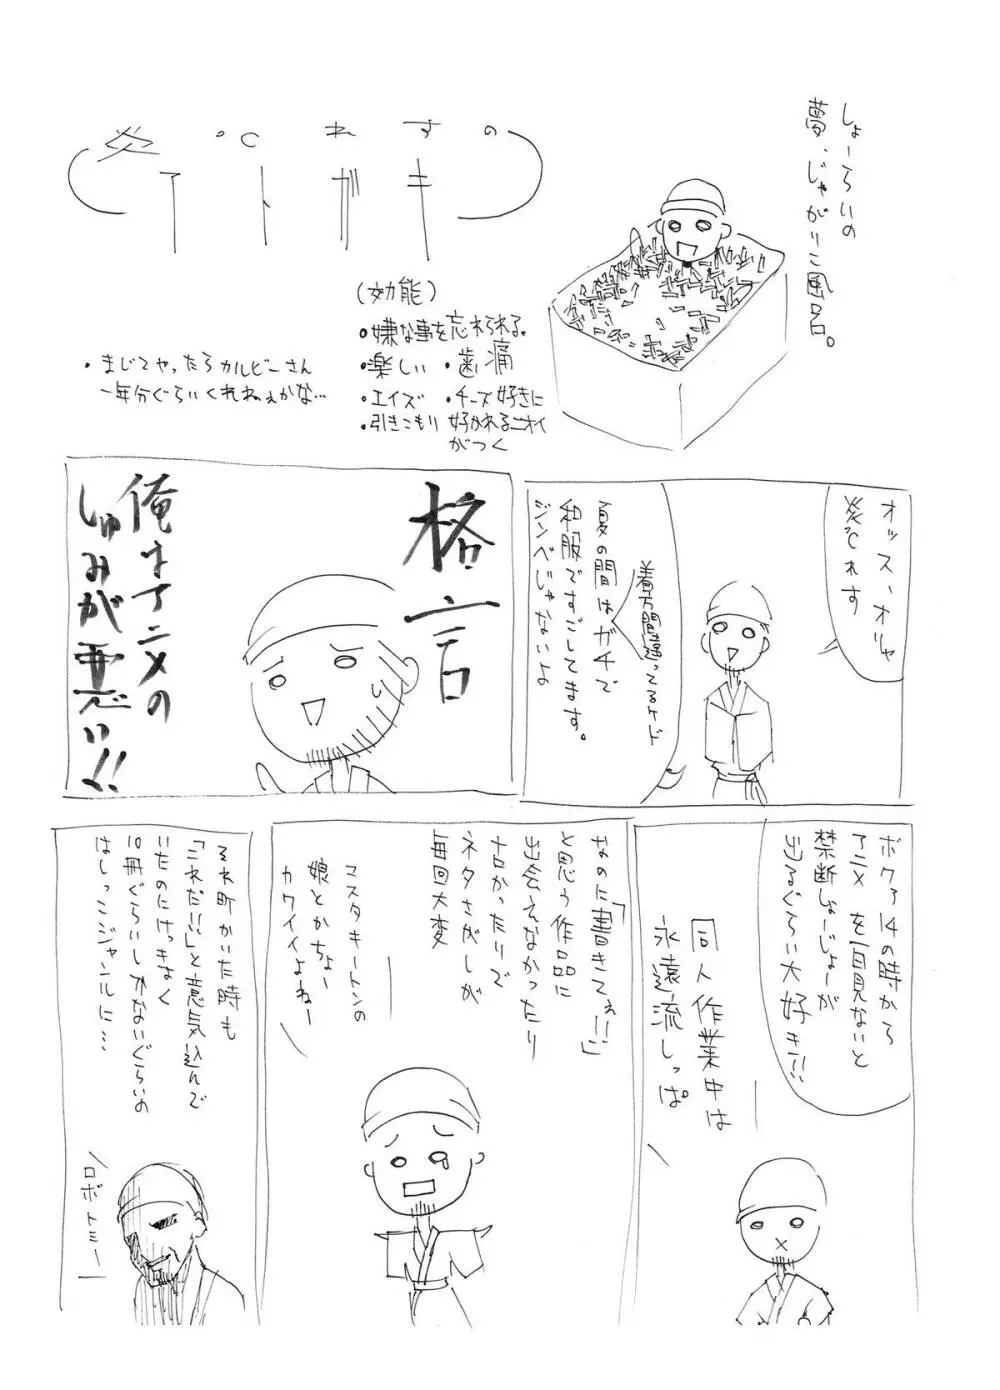 しょーらいの
夢、じゃがりこ風呂。
炎℃れすの
アトガキ
(効能)
•嫌な事を忘れられる。
•楽しい
•歯痛
•エイズ
•チーズ好きに
好かれるニオイ
がつく
•引きこもり
•まじでやったらカルビーさん
一年分ぐらいくれねぇかな…
オッス、オリャ
炎℃れす
夏の間はガチで
和服ですごしてます。
ジンベじゃないよ
着方間違ってるケド
格言
俺はアニメの
しゅみが悪い!!
ボクァ14の時から
アニメを一日見ないと
禁断しょーじょーが
出るぐらい大好き!!!
同人作業中は
永遠流しっぱ
なのに「書きてぇ!!」
と思う作品に
出会えなかったり
ナロかったりで
ネタさがしが
毎回大変
マスタキートンの
娘とかちょー
カワイイよねー
それ町かいた時も
「これだ!!」と意気込んで
いたのにけっきょく
10冊ぐらいしかないぐらいの
はしっこジャンルに…
\ロボトミー/